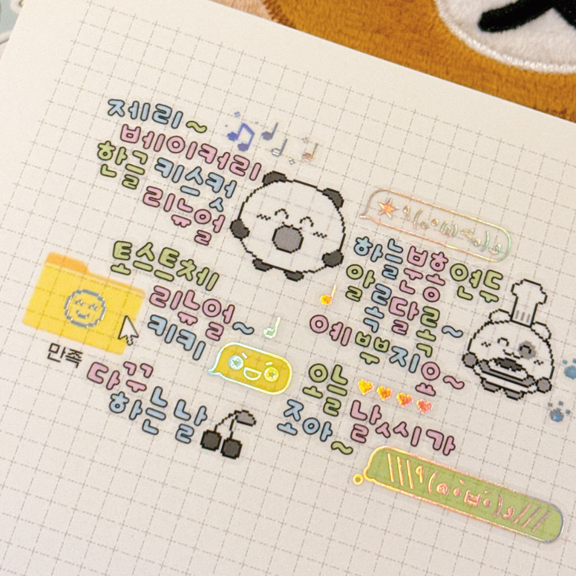 제리~
베이커리
한글 키스컷
리뉴얼
토스트체
리뉴얼~
키키
만족
다꾸
하는 날
하늘 분홍 연두
알록달록~
예쁘지요~
오늘
조아~ 날씨가